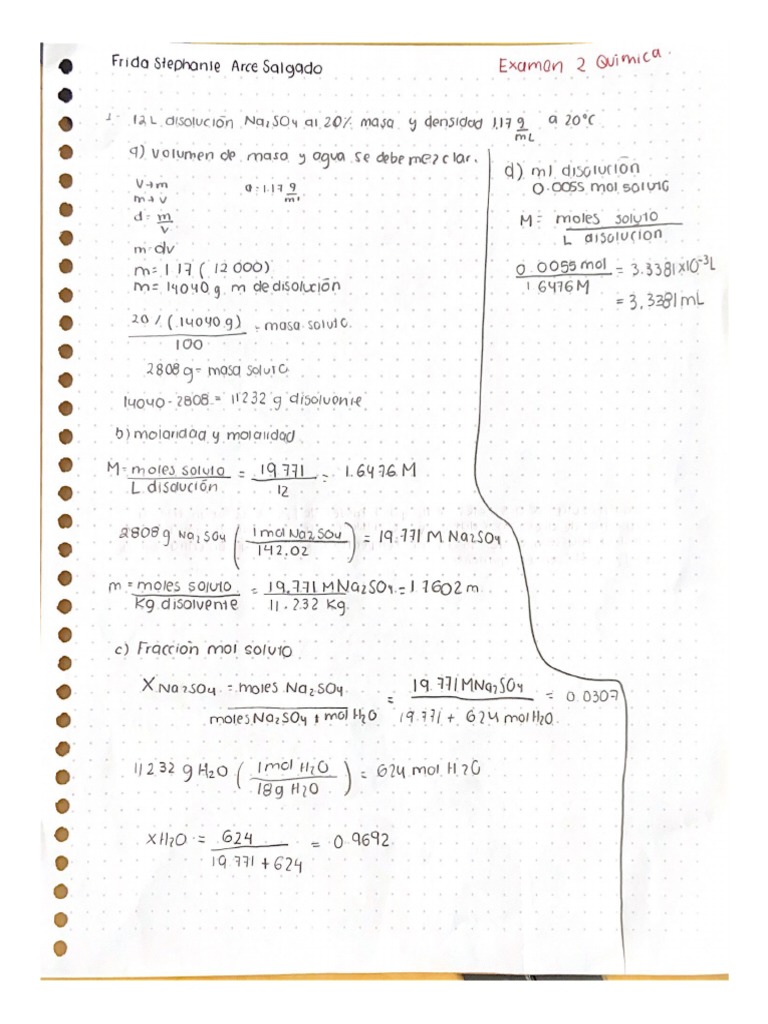 Frida Stephanie Arce Salgado
Examen 2 Quimica.
1- 12 L disolución Na2SO4 al 20% masa y densidad 1.17 g/mL a 20°C
a) volumen de masa y agua se debe mezclar.
V→m
m→v
d = m/v
d = 1.17 g/ml
m = dv
m = 1.17 ( 12 000)
m = 14040 g m de disolución
20 % (14040 g) / 100 = masa soluto.
2808 g = masa soluto
14040 - 2808 = 11232 g disolvente
b) molaridad y molalidad
M = moles soluto / L disolución = 19.771 / 12 = 1.6476 M
2808 g Na2SO4 ( 1 mol Na2SO4 / 142.02 ) = 19.771 M Na2SO4
m = moles soluto / Kg disolvente = 19.771 M Na2SO4 / 11.232 Kg. = 1.7602 m
c) Fraccion mol soluto
X Na2SO4 = moles Na2SO4 / moles Na2SO4 + mol H2O = 19.771 M Na2SO4 / 19.771 + 624 mol H2O = 0.0307
11232 g H2O ( 1 mol H2O / 18 g H2O ) = 624 mol H2O
X H2O = 624 / 19.771 + 624 = 0.9692
d) ml disolución
0.0055 mol soluto
M = moles soluto / L disolucion
0.0055 mol / 1.6476 M = 3.3381 x 10⁻³ L
= 3.3381 mL